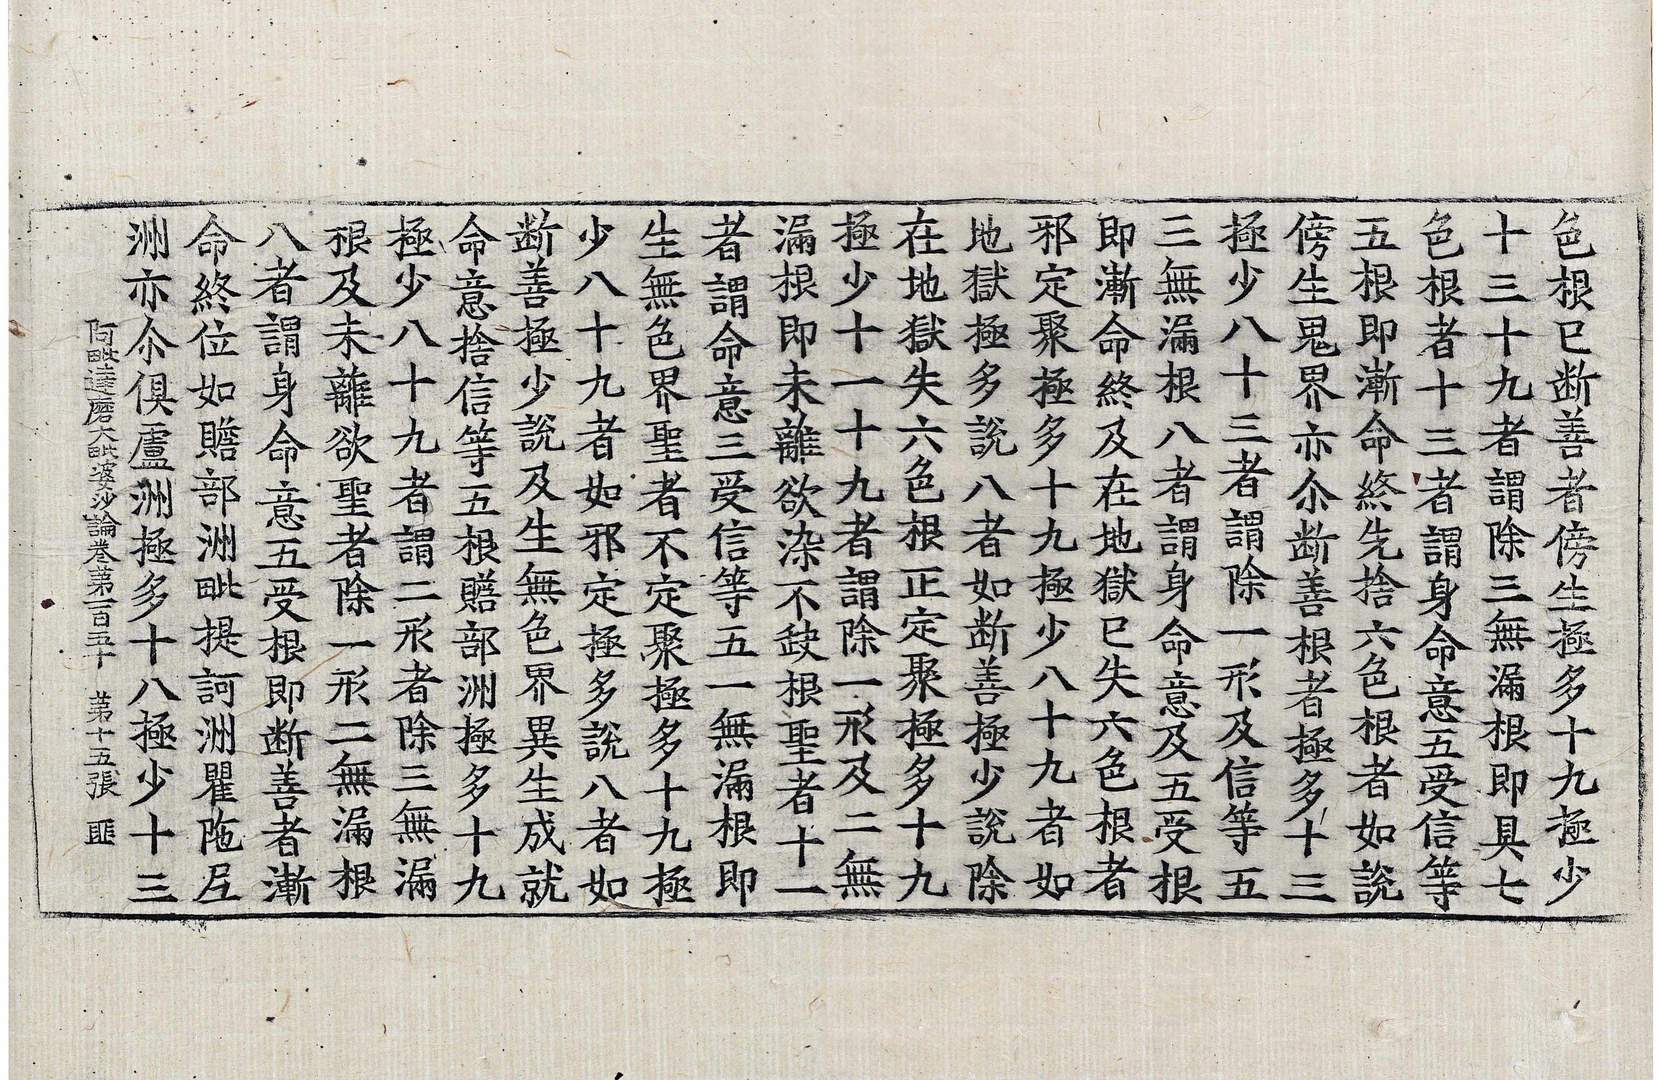 色根已断善者傍生極多十九極少
十三十九者謂除三無漏根即具七
色根者十三者謂身命意五受信等
五根即漸命終先捨六色根者如說
傍生鬼界亦尒断善根者極多十三
極少八十三者謂除一形及信等五
三無漏根八者謂身命意及五受根
即漸命終及在地獄已失六色根者
邪定聚極多十九極少八十九者如
地獄極多說八者如断善極少說除
在地獄失六色根正定聚極多十九
極少十一十九者謂除一形及二無
漏根即未離欲染不缺根聖者十一
者謂命意三受信等五一無漏根即
生無色界聖者不定聚極多十九極
少八十九者如邪定極多說八者如
断善極少說及生無色界異生成就
命意捨信等五根贍部洲極多十九
極少八十九者謂二形者除三無漏
根及未離欲聖者除一形二無漏根
八者謂身命意五受根即断善者漸
命終位如贍部洲毗提訶洲瞿陁尼
洲亦尒俱盧洲極多十八極少十三
阿毗達磨大毗婆沙論卷第一百五十 第十五張 匪